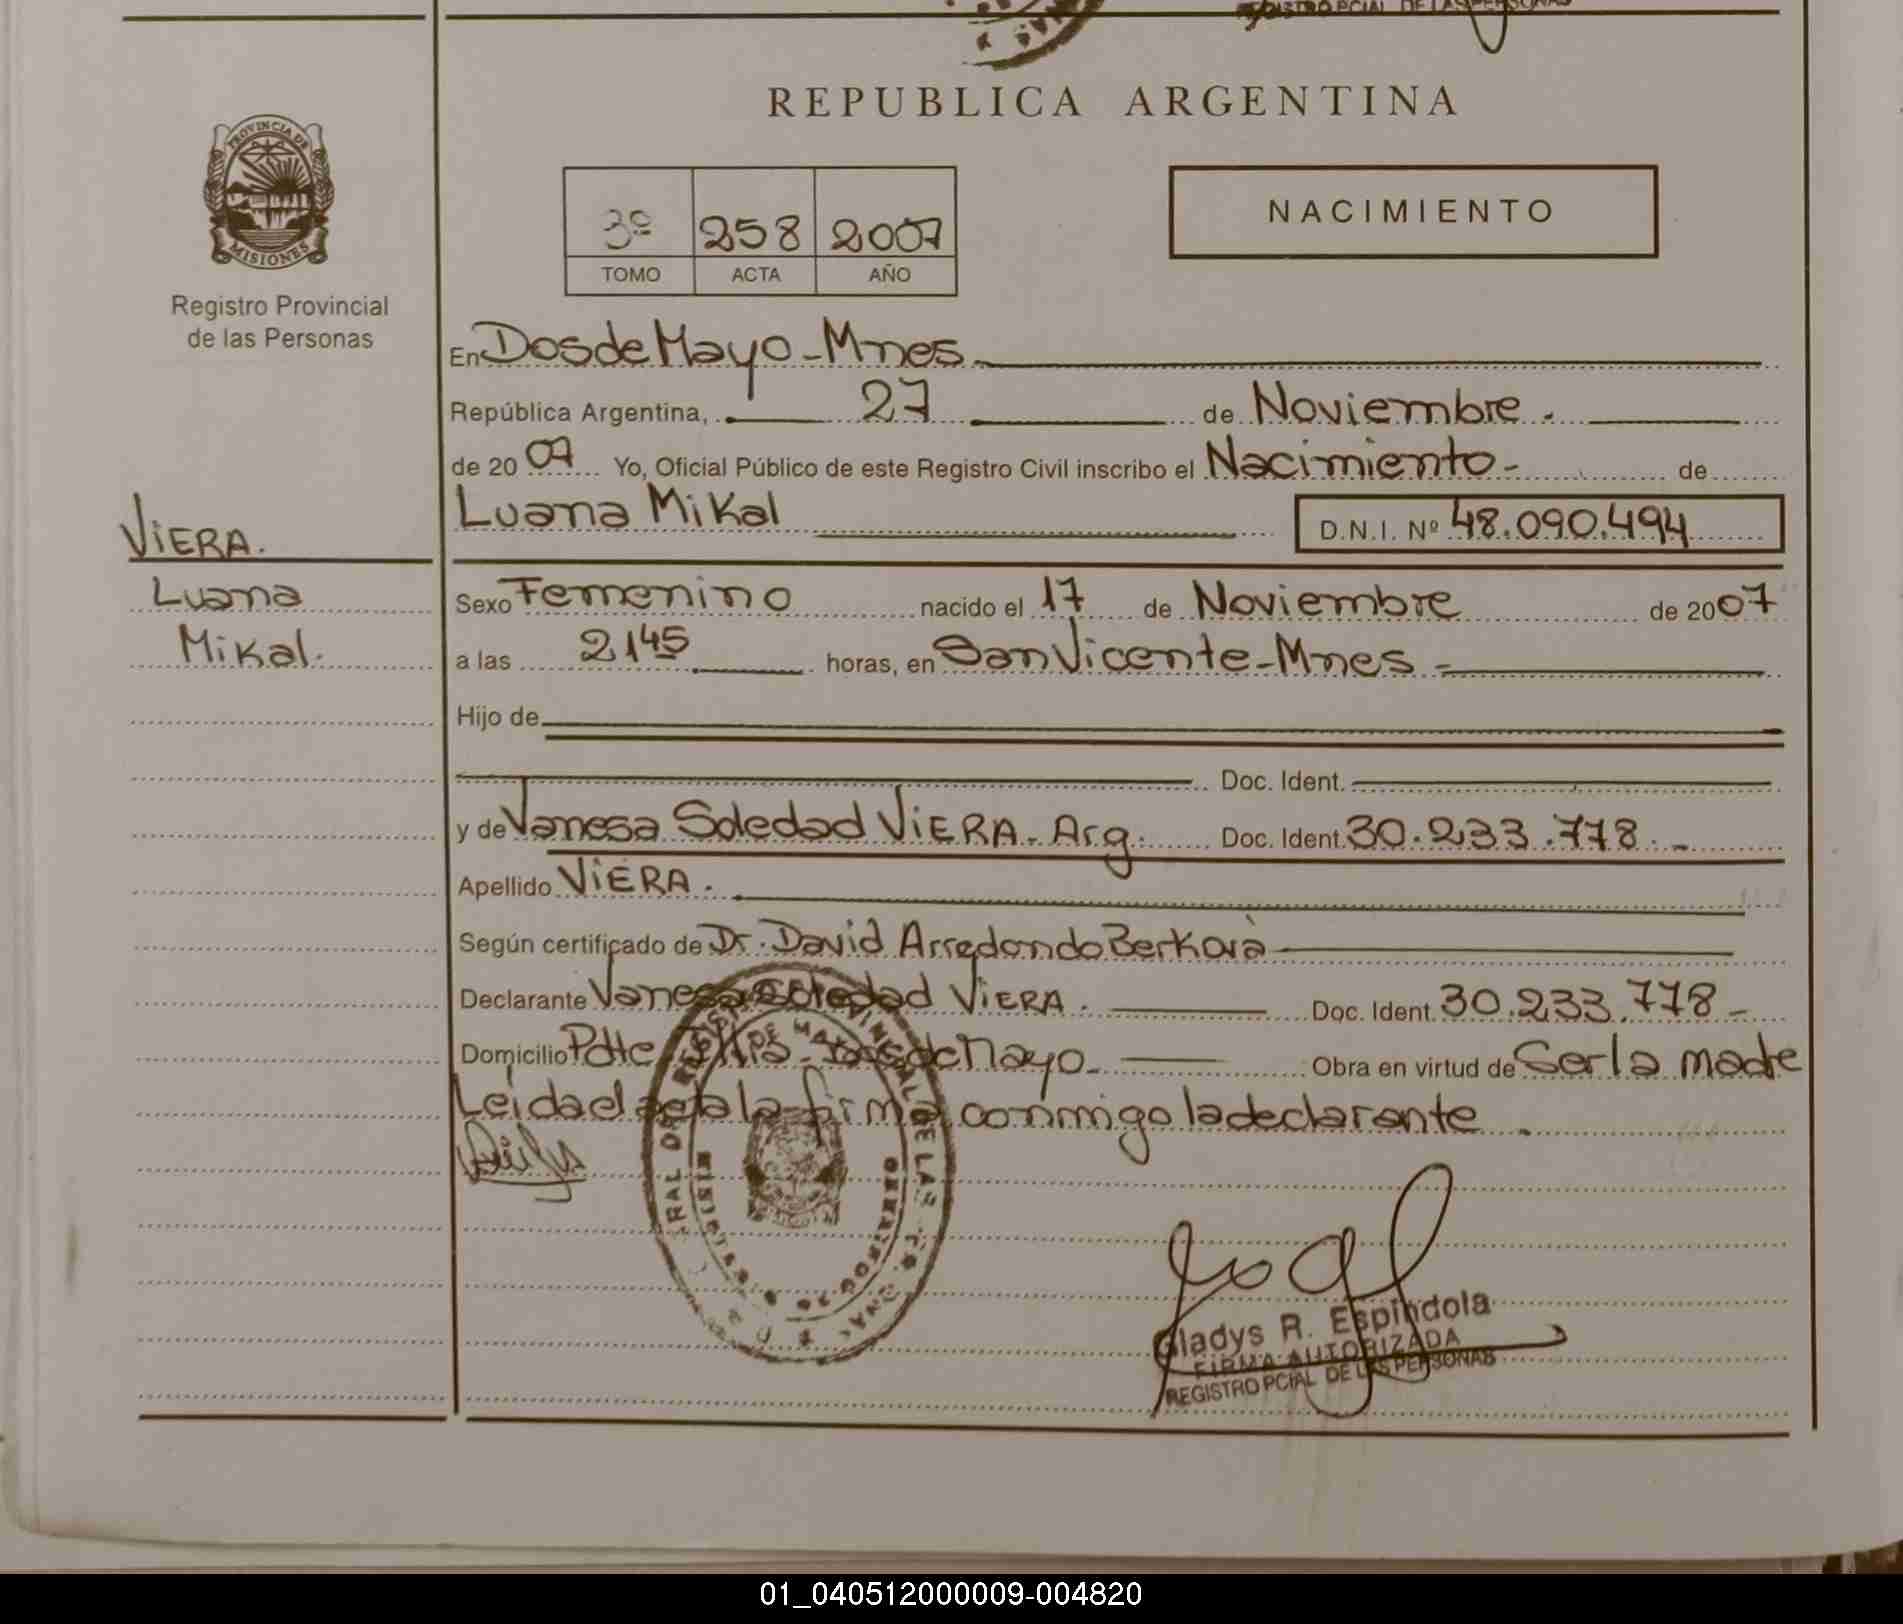 REGISTRO PCIAL DE LAS PERSONAS
REPUBLICA ARGENTINA
PROVINCIA DE
MISIONES
Registro Provincial
de las Personas
3º 258 2007
TOMO ACTA AÑO
NACIMIENTO
En Dos de Mayo - Mnes
República Argentina, 27 de Noviembre.
de 20 07 Yo, Oficial Público de este Registro Civil inscribo el Nacimiento - de
Luana Mikal D.N.I. Nº 48.090.494
VIERA.
Luana
Mikal.
Sexo Femenino nacido el 17 de Noviembre de 20 07
a las 21 45 horas, en San Vicente - Mnes -
Hijo de
Doc. Ident.
y de Vanesa Soledad VIERA - Arg. Doc. Ident. 30.233.778. -
Apellido VIERA.
Según certificado de Dr. David Arredondo
Declarante Vanesa Soledad VIERA. Doc. Ident. 30.233.778 -
Domicilio Pdte de Mayo - Obra en virtud de Ser la madre
Leida el acta la firma conmigo la declarante.
Gladys R. Espindola
FIRMA AUTORIZADA
REGISTRO PCIAL DE LAS PERSONAS
01_040512000009-004820